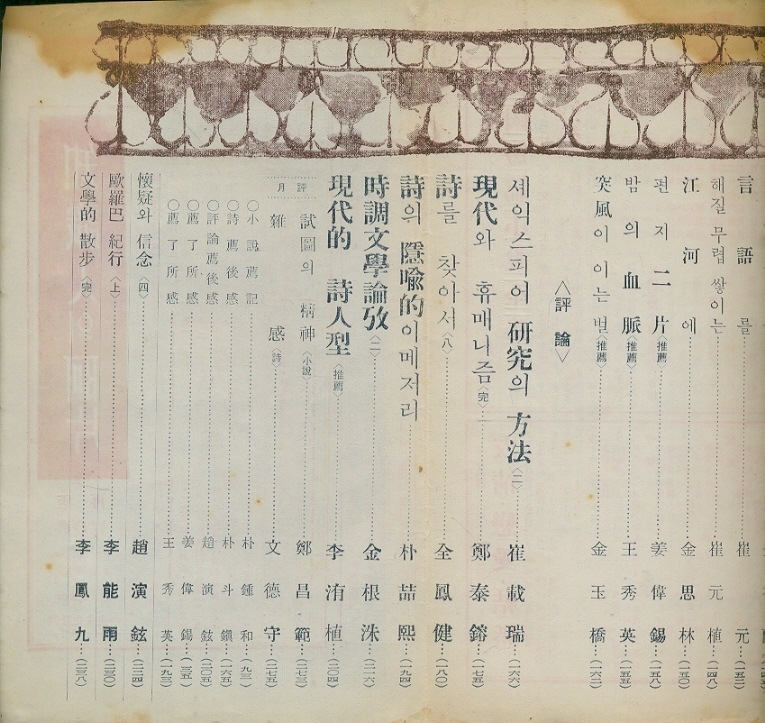 言語를 崔元 (一五二)
해질무렵 쌓이는 崔元植 (一四八)
江河에 金思林 (一五〇)
편지二片 <推薦> 姜偉錫 (一五八)
밤의 血脈 <推薦> 王秀英 (一五五)
突風이 이는 벌 <推薦> 金玉橋 (一六二)
<評論>
셰익스피어 硏究의 方法 <二> 崔載瑞 (一六六)
現代와 휴매니즘 <完> 鄭泰鎔 (一七五)
詩를 찾아서 <八> 全鳳健 (一八〇)
詩의 隱喩的 이메저리 朴喆熙 (一九四)
時調文學論攷 <二> 金根洙 (二一六)
現代的 詩人型 <推薦> 李洧植 (二〇四)
月評
試圖의 精神 <小說> 鄭昌範 (二七三)
雜感 <詩> 文德守 (二七五)
○小說薦記 朴鍾和 (九三)
○詩薦後感 朴斗鎭 (一六五)
○評論薦後感 趙演鉉 (二〇五)
○薦了所感 姜偉錫 (一三五)
○薦了所感 王秀英 (一九三)
懷疑와 信念 <四> 趙演鉉 (二二四)
歐羅巴 紀行 <上> 李能雨 (二三〇)
文學的 散步 <完> 李鳳九 (二三八)